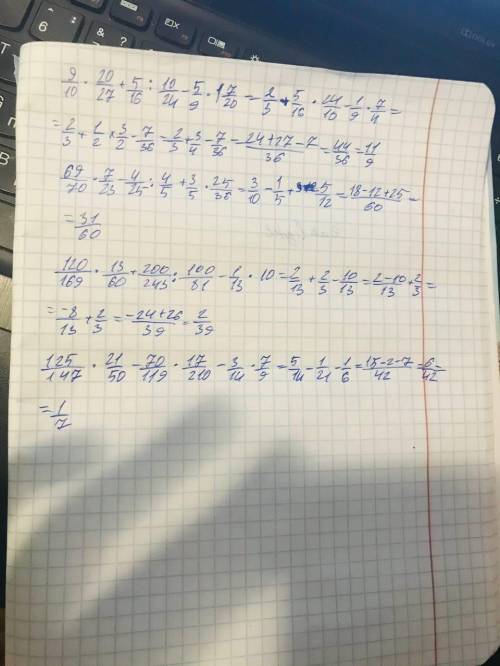 9/10 · 20/27 + 5/16 : 10/24 - 5/9 · 1 7/20 = 2/3 + 5/16 · 24/10 - 1/9 · 7/4 =
= 2/3 + 1/2 × 3/2 - 7/36 = 2/3 + 3/4 - 7/36 = (24+27-7)/36 = 44/36 = 11/9
69/70 · 7/23 - 4/25 : 4/5 + 3/5 · 25/36 = 3/10 - 1/5 + 5/12 = (18-12+25)/60 =
= 31/60
120/169 · 13/60 + 200/243 : 100/81 - 1/13 · 10 = 2/13 + 2/3 - 10/13 = (2-10)/13 + 2/3 =
= -8/13 + 2/3 = (-24+26)/39 = 2/39
125/147 · 21/50 - 70/119 · 17/210 - 3/14 · 7/9 = 5/14 - 1/21 - 1/6 = (15-2-7)/42 = 6/42 =
= 1/7